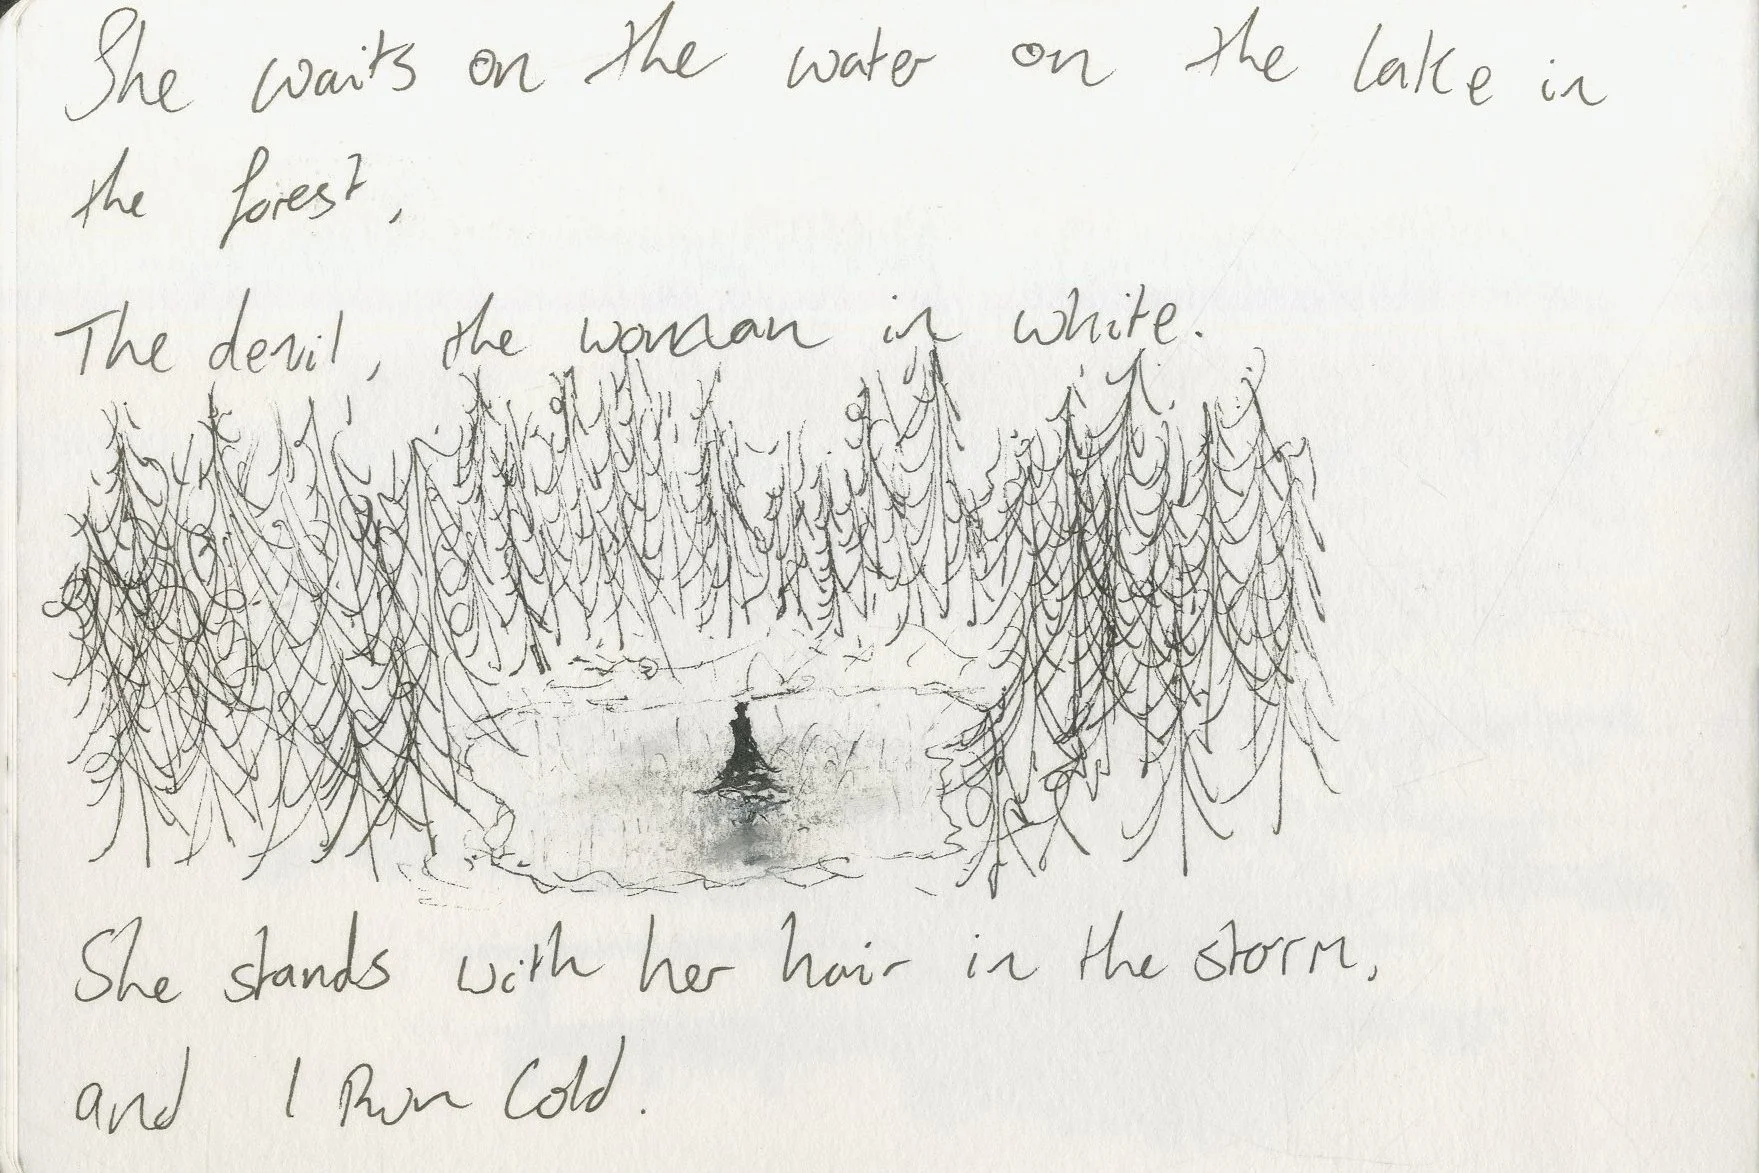 She waits on the water on the lake in
the forest,
The devil, the woman in white.
She stands with her hair in the storm,
and I Run Cold.